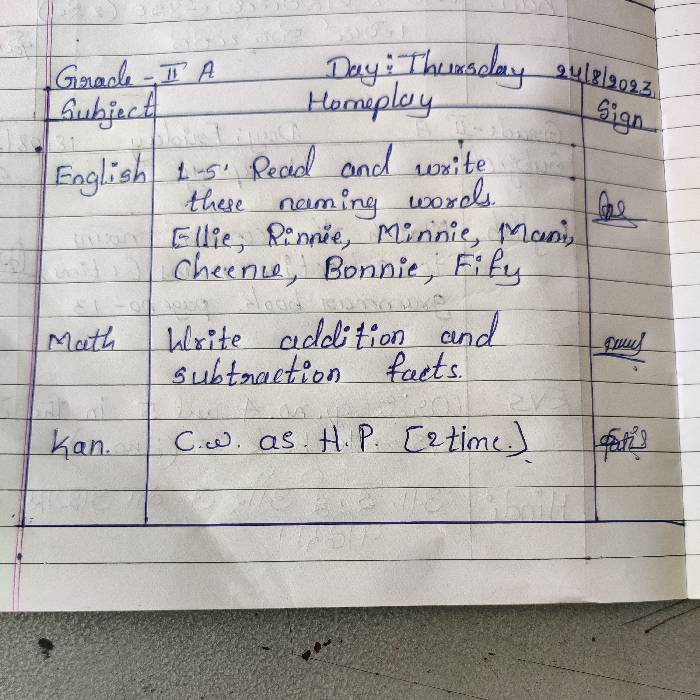 Grade - II A Day: Thursday 24/8/2023
Subject Homeplay Sign
English L-5: Read and write
these naming words.
Ellie, Rinnie, Minnie, Mani,
Bonnie, Fify
Math Write addition and
subtraction facts.
Kan. C.W. as. H.P. [2 time.]